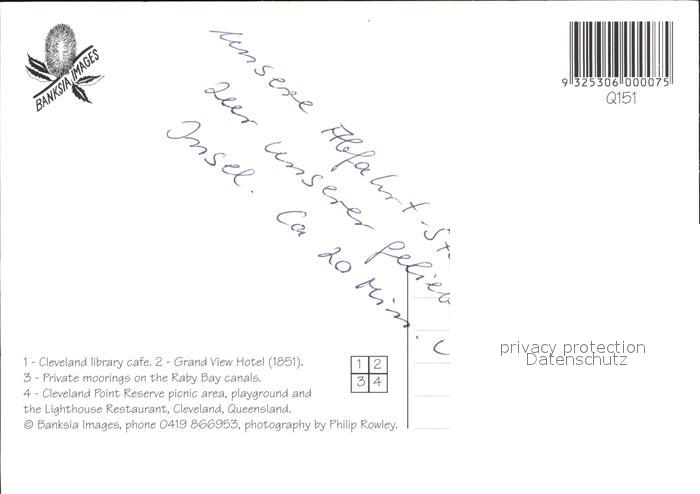 BANKSIA IMAGES
9 325306 000075
Q151
Unsere Abfahrt-St
zur unserer gelieb
Insel. Ca 20 Min.
1 2
3 4
1 - Cleveland library cafe. 2 - Grand View Hotel (1851).
3 - Private moorings on the Raby Bay canals.
4 - Cleveland Point Reserve picnic area, playground and
the Lighthouse Restaurant, Cleveland, Queensland.
© Banksia Images, phone 0419 866953, photography by Philip Rowley.
privacy protection
Datenschutz